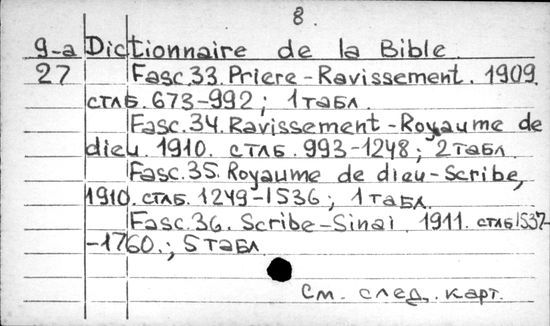 8.
9-a Dictionnaire de la Bible
27 Fasc.33. Priere-Ravissement. 1909.
стлб. 673-992; 1 табл.
Fasc.34. Ravissement-Royaume de
dieu. 1910. стлб. 993-1248; 2 табл.
Fasc.35. Royaume de dieu-Scribe,
1910. стлб. 1249-1536; 1 табл.
Fasc.36. Scribe-Sinai. 1911. стлб 1537-
-1760.; 5 табл
См. след. карт.